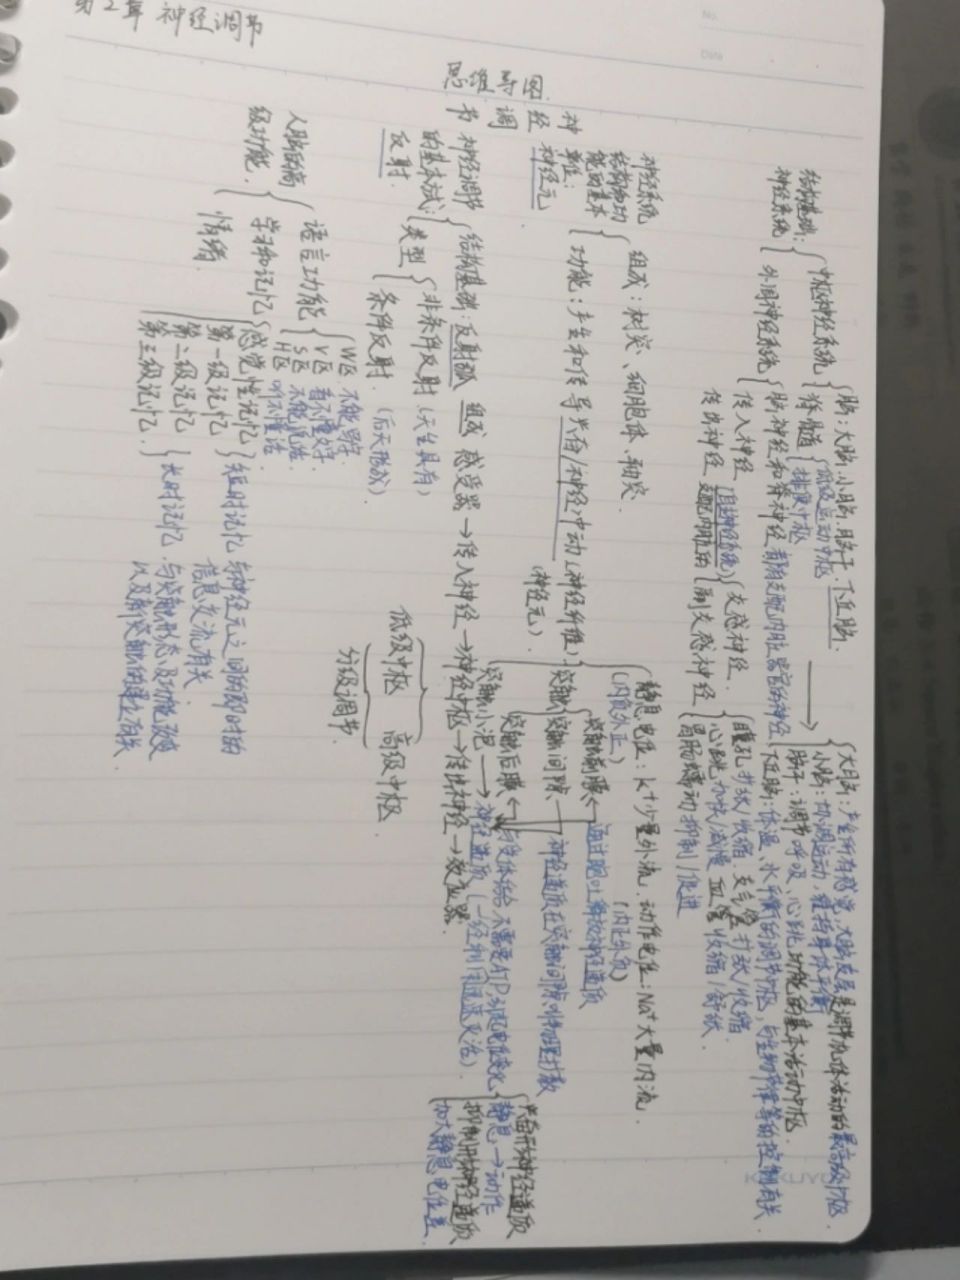 第2章 神经调节
No.
Date
思维导图
神经调节
结构基础:神经系统
中枢神经系统
脑:大脑、小脑、脑干、下丘脑.
大脑:产生所有感觉,大脑皮层是调节机体活动的最高级中枢.
小脑:协调运动,维持身体平衡
脑干:调节呼吸、心跳功能的基本活动中枢.
下丘脑:体温、水平衡的调节中枢,与生物节律等的控制有关
脊髓
低级运动中枢
外周神经系统
脑神经和脊神经 都有支配内脏器官的神经
传入神经
传出神经
支配内脏的
(自主神经系统)
交感神经.
副交感神经
瞳孔扩张/收缩 支气管扩张/收缩.
心跳加快/减慢 血管收缩/舒张.
胃肠蠕动抑制/促进
神经系统结构和功能的基本单位:神经元
组成:树突、细胞体、轴突.
功能:产生和传导兴奋/神经冲动
(神经纤维)
(神经元)
静息电位:K+少量外流. 动作电位:Na+大量内流.
(内负外正)
(内正外负)
突触
突触前膜
通过胞吐释放神经递质
突触间隙
神经递质在突触间隙中物理扩散
突触后膜
与受体结合 不需要ATP,引起电位变化
突触小泡
神经递质
兴奋形神经递质
静息→动作
抑制形神经递质
加大静息电位差
神经调节的基本式:反射.
结构基础:反射弧 组成 感受器→传入神经→神经中枢→传出神经→效应器.
类型
非条件反射(天生具有)
条件反射.(后天形成)
低级中枢 高级中枢.
分级调节.
人脑的高级功能.
语言功能
W区 不能写字.
V区 看不懂文字.
S区 不能说话.
H区 听不懂话.
学习和记忆
感觉性记忆
第一级记忆
短时记忆 与神经元之间的即时的信息交流有关
第二级记忆
第三级记忆.
长时记忆. 与突触形态及功能改变以及新突触的建立有关.
情绪.